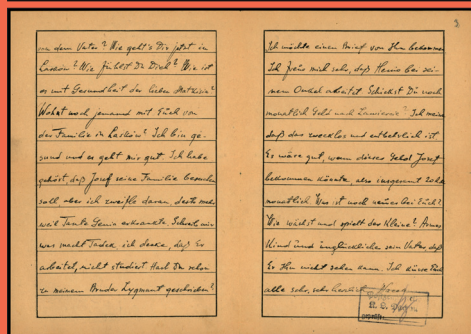 von dem Vater? Wie geht's Dir jetzt in
Laskow? Wie fühlst Du Dich? Wie ist
es mit Gesundheit der lieben
Wohnt noch jemand mit Euch von
der Familie in Laskow? Ich bin ge-
sund und es geht mir gut. Ich habe
gehört, daß Josef seine Familie besuchen
soll aber ich zweifle daran, desto mehr
weil Tante Genia erkrankte. Schreib mir
was macht Tadek, ich denke, daß Er
arbeitet, nicht studiert. Hast Du schon
zu meinem Bruder Zygmunt geschrieben?
Ich möchte einen Brief von Ihm bekommen
Ich freue mich sehr, daß Henio bei sei-
nem Onkel arbeitet. Schickst Du noch
monatlich Geld nach? Ich meine
daß das zwecklos und entbehrlich ist
Es wäre gut, wenn dieses Geld Josef
bekommen könnte, also insgesamt
monatlich. Was ist noch neues bei Euch?
Wie wächst und spielt der Kleine? Armes
Kind und unglücklicher sein Vater, daß
Er Ihn nicht sehen kann. Ich küsse Euch
alle sehr, sehr herzlich